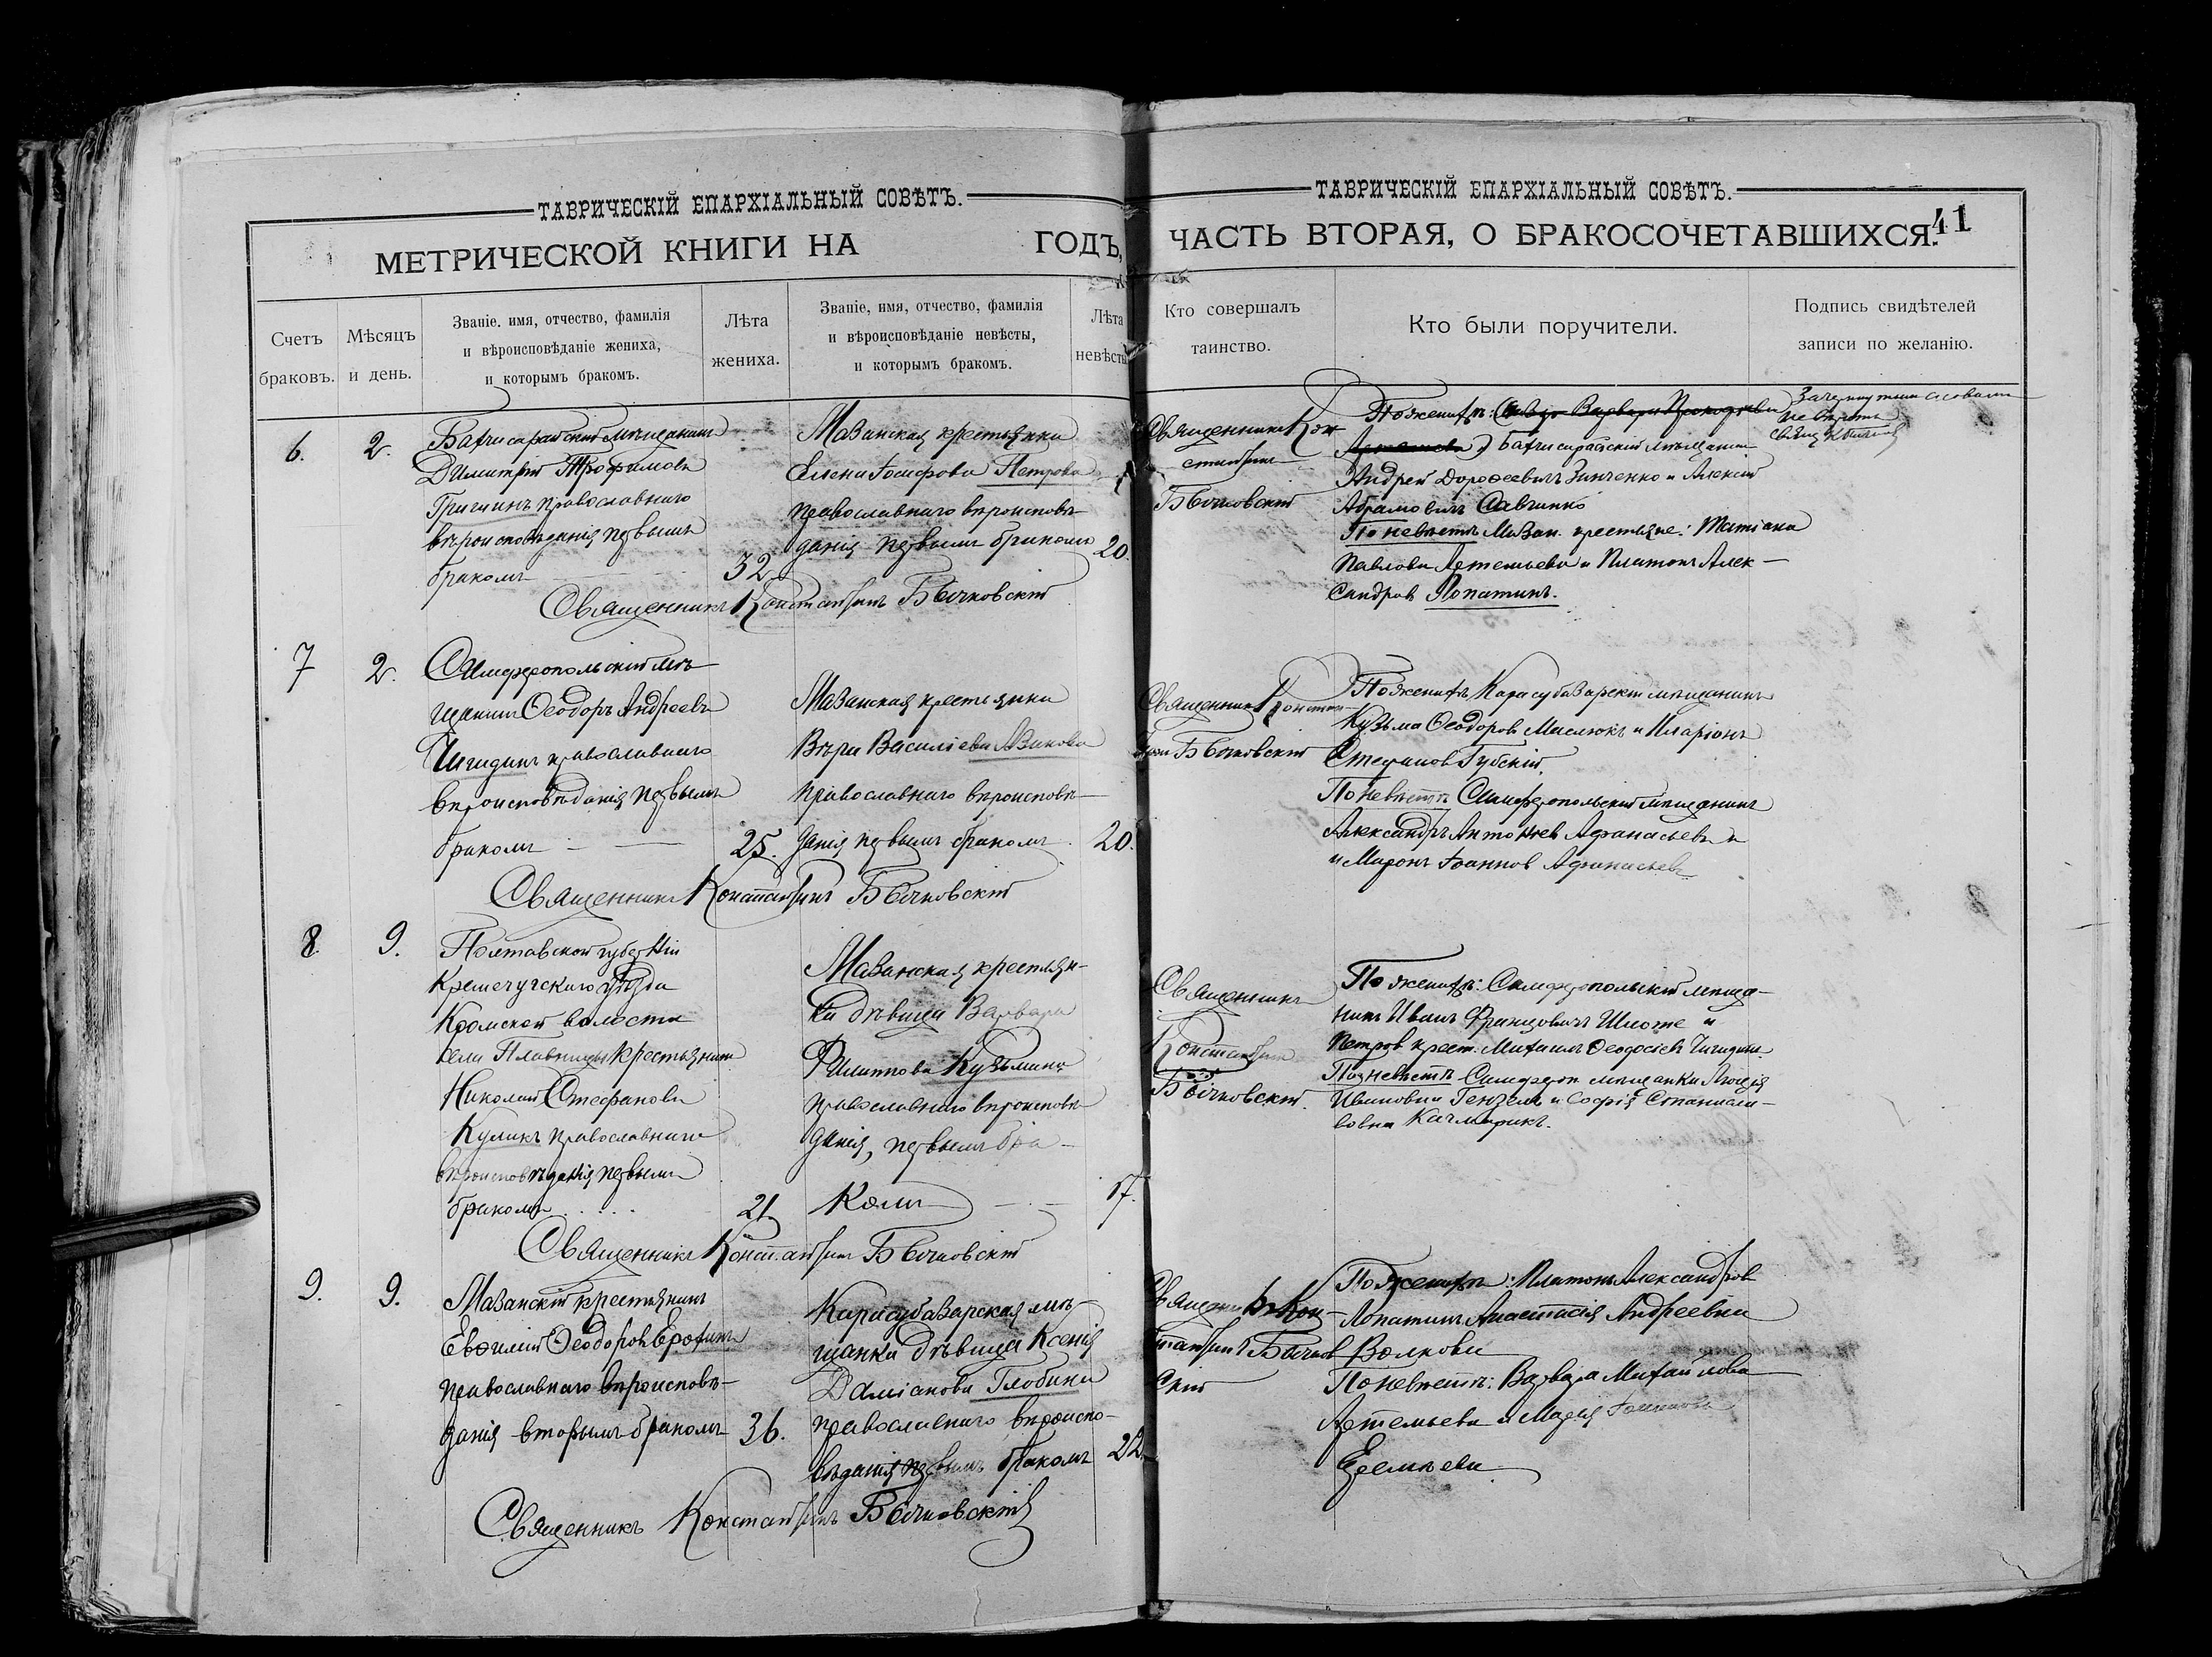 ТАВРИЧЕСКІЙ ЕПАРХІАЛЬНЫЙ СОВѢТЪ.
МЕТРИЧЕСКОЙ КНИГИ НА ГОДЪ,
Счетъ браковъ.
Мѣсяцъ и день.
Званіе. имя, отчество, фамилія
и вѣроисповѣданіе жениха,
и которымъ бракомъ.
Лѣта
жениха.
Званіе, имя, отчество, фамилія
и вѣроисповѣданіе невѣсты,
и которымъ бракомъ.
Лѣта
невѣсты
ТАВРИЧЕСКІЙ ЕПАРХІАЛЬНЫЙ СОВѢТЪ.
ЧАСТЬ ВТОРАЯ, О БРАКОСОЧЕТАВШИХСЯ.
41
Кто совершалъ
таинство.
Кто были поручители.
Подпись свидѣтелей
записи по желанію.
6.
2.
Бахчисарайскій мѣщанинъ
Димитрій Трофимовъ
Гришинъ православнаго
вѣроисповѣданія первымъ
бракомъ
32
Мазанская крестьянка
Елена Іосифова Петрова
православнаго вѣроисповѣ-
данія первымъ бракомъ
20.
Священникъ Кон-
стантинъ
Бычковскій
По женихѣ:
Бахчисарайскій мѣщанинъ
Андрей Дорофеевичъ Зинченко и Алексій
Абрамовичъ Савченко
По невѣстѣ Мазан. крестьяне: Татіана
Павлова Артемьева и Платонъ Алек-
сандровъ Лопатинъ.
Зачеркнутымъ словамъ
не вѣрить
Священникъ Константинъ Бычковскій
7
2.
Симферопольскій мѣ-
щанинъ Ѳеодоръ Андреевъ
Чигидинъ православнаго
вѣроисповѣданія первымъ
бракомъ
25.
Мазанская крестьянка
Вѣра Васильева
православнаго вѣроисповѣ-
данія первымъ бракомъ.
20.
Священникъ Констан-
тинъ Бычковскій
По женихѣ Карасубазарскій мѣщанинъ
Кузьма Ѳеодоровъ Маслюкъ и Иларіонъ
Стефановъ Губскій.
По невѣстѣ Симферопольскій мѣщанинъ
Александръ Антоніевъ Афанасьевъ и
и Миронъ Іоанновъ Афанасьевъ
Священникъ Константинъ Бычковскій
8.
9.
Полтавской губерніи
Кременчугскаго уѣзда
волости
села крестьянинъ
Николай Стефановъ
Куликъ православнаго
вѣроисповѣданія первымъ
бракомъ
21
Мазанская крестьян-
ка дѣвица Варвара
Филиппова Кузьмина
православнаго вѣроисповѣ-
данія, первымъ бра-
комъ
17.
Священникъ
Константинъ
Бычковскій.
По женихѣ: Симферопольскій мѣща-
нинъ Иванъ Францовичъ и
Петров. крест. Михаилъ Ѳеодосіевъ Чигидинъ
По невѣстѣ Симфероп. мѣщанки Лидія
Ивановна Гензель и Софія Станисла-
вовна Качмарикъ.
Священникъ Константинъ Бычковскій
9.
9.
Мазанскій крестьянинъ
Евфимій Ѳеодоровъ Ерохинъ
православнаго вѣроисповѣ-
данія вторымъ бракомъ
36.
Карасубазарская мѣ-
щанка дѣвица Ксенія
Даміанова Глобина
православнаго вѣроиспо-
вѣданія первымъ бракомъ
22.
Священникъ Кон-
стантинъ Бычков
скій
По женихѣ: Платонъ Александров
Лопатинъ Анастасія Андреевна
Волкова
По невѣстѣ: Варвара Михайлова
Артемьева и Марія
Еремѣева.
Священникъ Константинъ Бычковскій